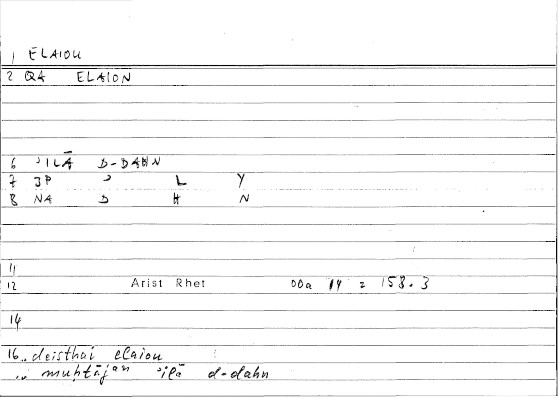 1 ELAIOU
2 QA ELAION
6 ʾILĀ D-DAHN
7 JP ʾ L Y
8 NA D H N
11
12 Arist Rhet 00a 14 = 158.3
14
16.. deisthai elaiou
.. muḥtājan ʾilā d-dahn